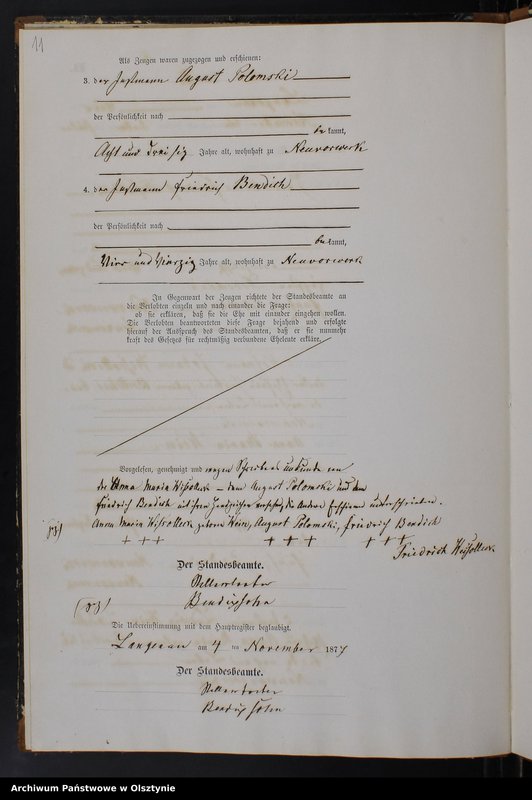 11
Als Zeugen waren zugezogen und erschienen:
3. der Instmann August Polomski
der Persönlichkeit nach
bekannt,
Acht und dreißig Jahre alt, wohnhaft zu Neuvorwerk
4. der Instmann Friedrich Bendich
der Persönlichkeit nach
bekannt,
Vier und vierzig Jahre alt, wohnhaft zu Neuvorwerk
In Gegenwart der Zeugen richtete der Standesbeamte an
die Verlobten einzeln und nach einander die Frage:
ob sie erklären, daß sie die Ehe mit einander eingehen wollen.
Die Verlobten beantworteten diese Frage bejahend und erfolgte
hierauf der Ausspruch des Standesbeamten, daß er sie nunmehr
kraft des Gesetzes für rechtmäßig verbundene Eheleute erkläre.
Vorgelesen, genehmigt und wegen Schreibens unkunde von
der Anna Maria – dem August Polomski und dem
Friedrich Bendich mit ihren Handzeichen unterschrieben.
Anna Maria geborne August Polomski, Friedrich Bendich
+ + + + + + + + +
Friedrich
Der Standesbeamte.
Stellvertreter
Die Uebereinstimmung mit dem Hauptregister beglaubigt.
Langenau am 4 ten November 1877
Der Standesbeamte.
Stellvertreter
Archiwum Państwowe w Olsztynie